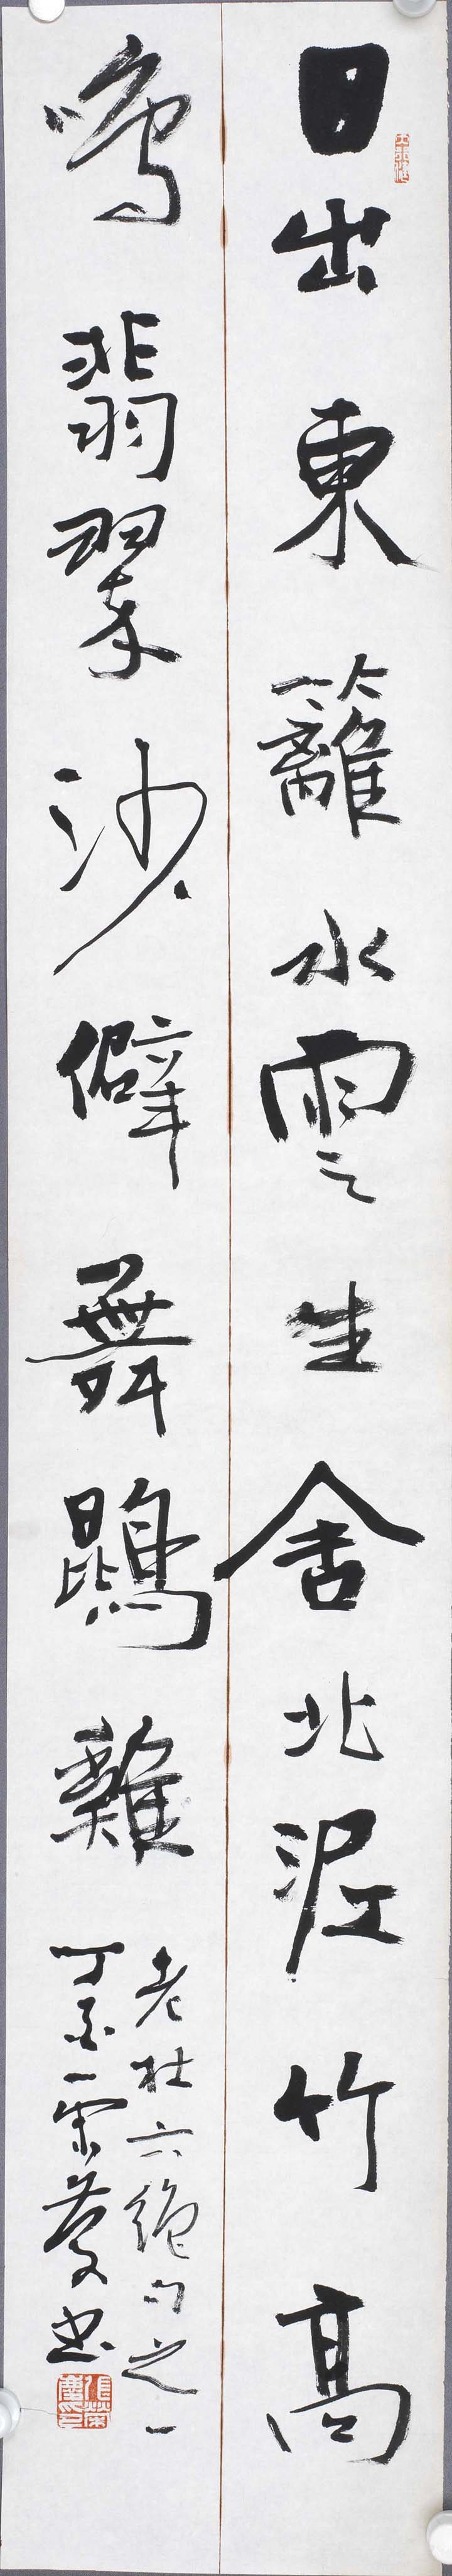 日出東籬水雲生舍北泥竹高
鳴翡翠沙僻舞鵾雞
老杜六絕句之一
丁亥榮慶書